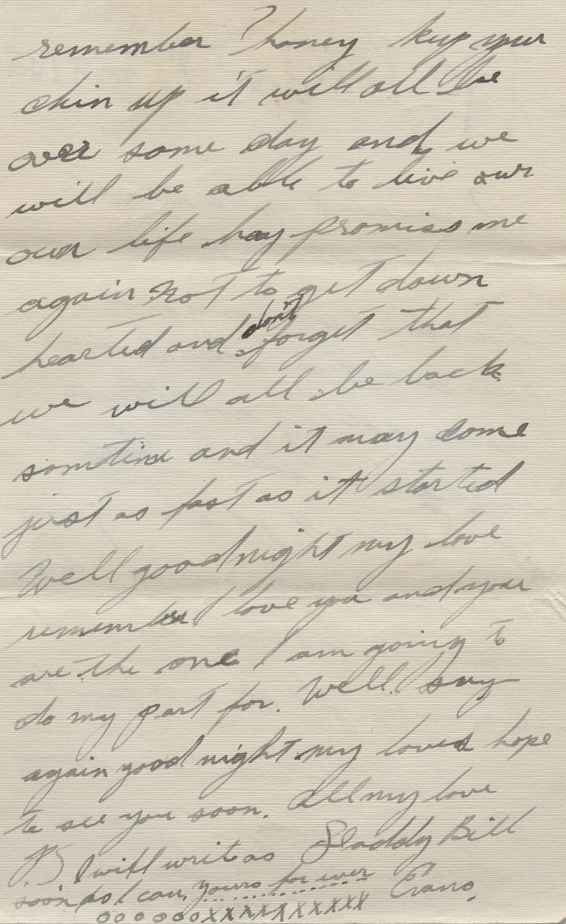 remember honey keep your
chin up it will all be
over some day and we
will be able to live our
own life hay promiss me
again not to get down
hearted and don't forget that
we will all be back
somtime and it may come
just as fast as it started
Well good night my love
remember I love you and your
are the one I am going to
do my part for. Well say
again good night my loves hope
to see you soon. All my love
Daddy Bill
PS I will write as
soon as I can, yours for ever
Evans
ooooooxxxxxxxxxxx